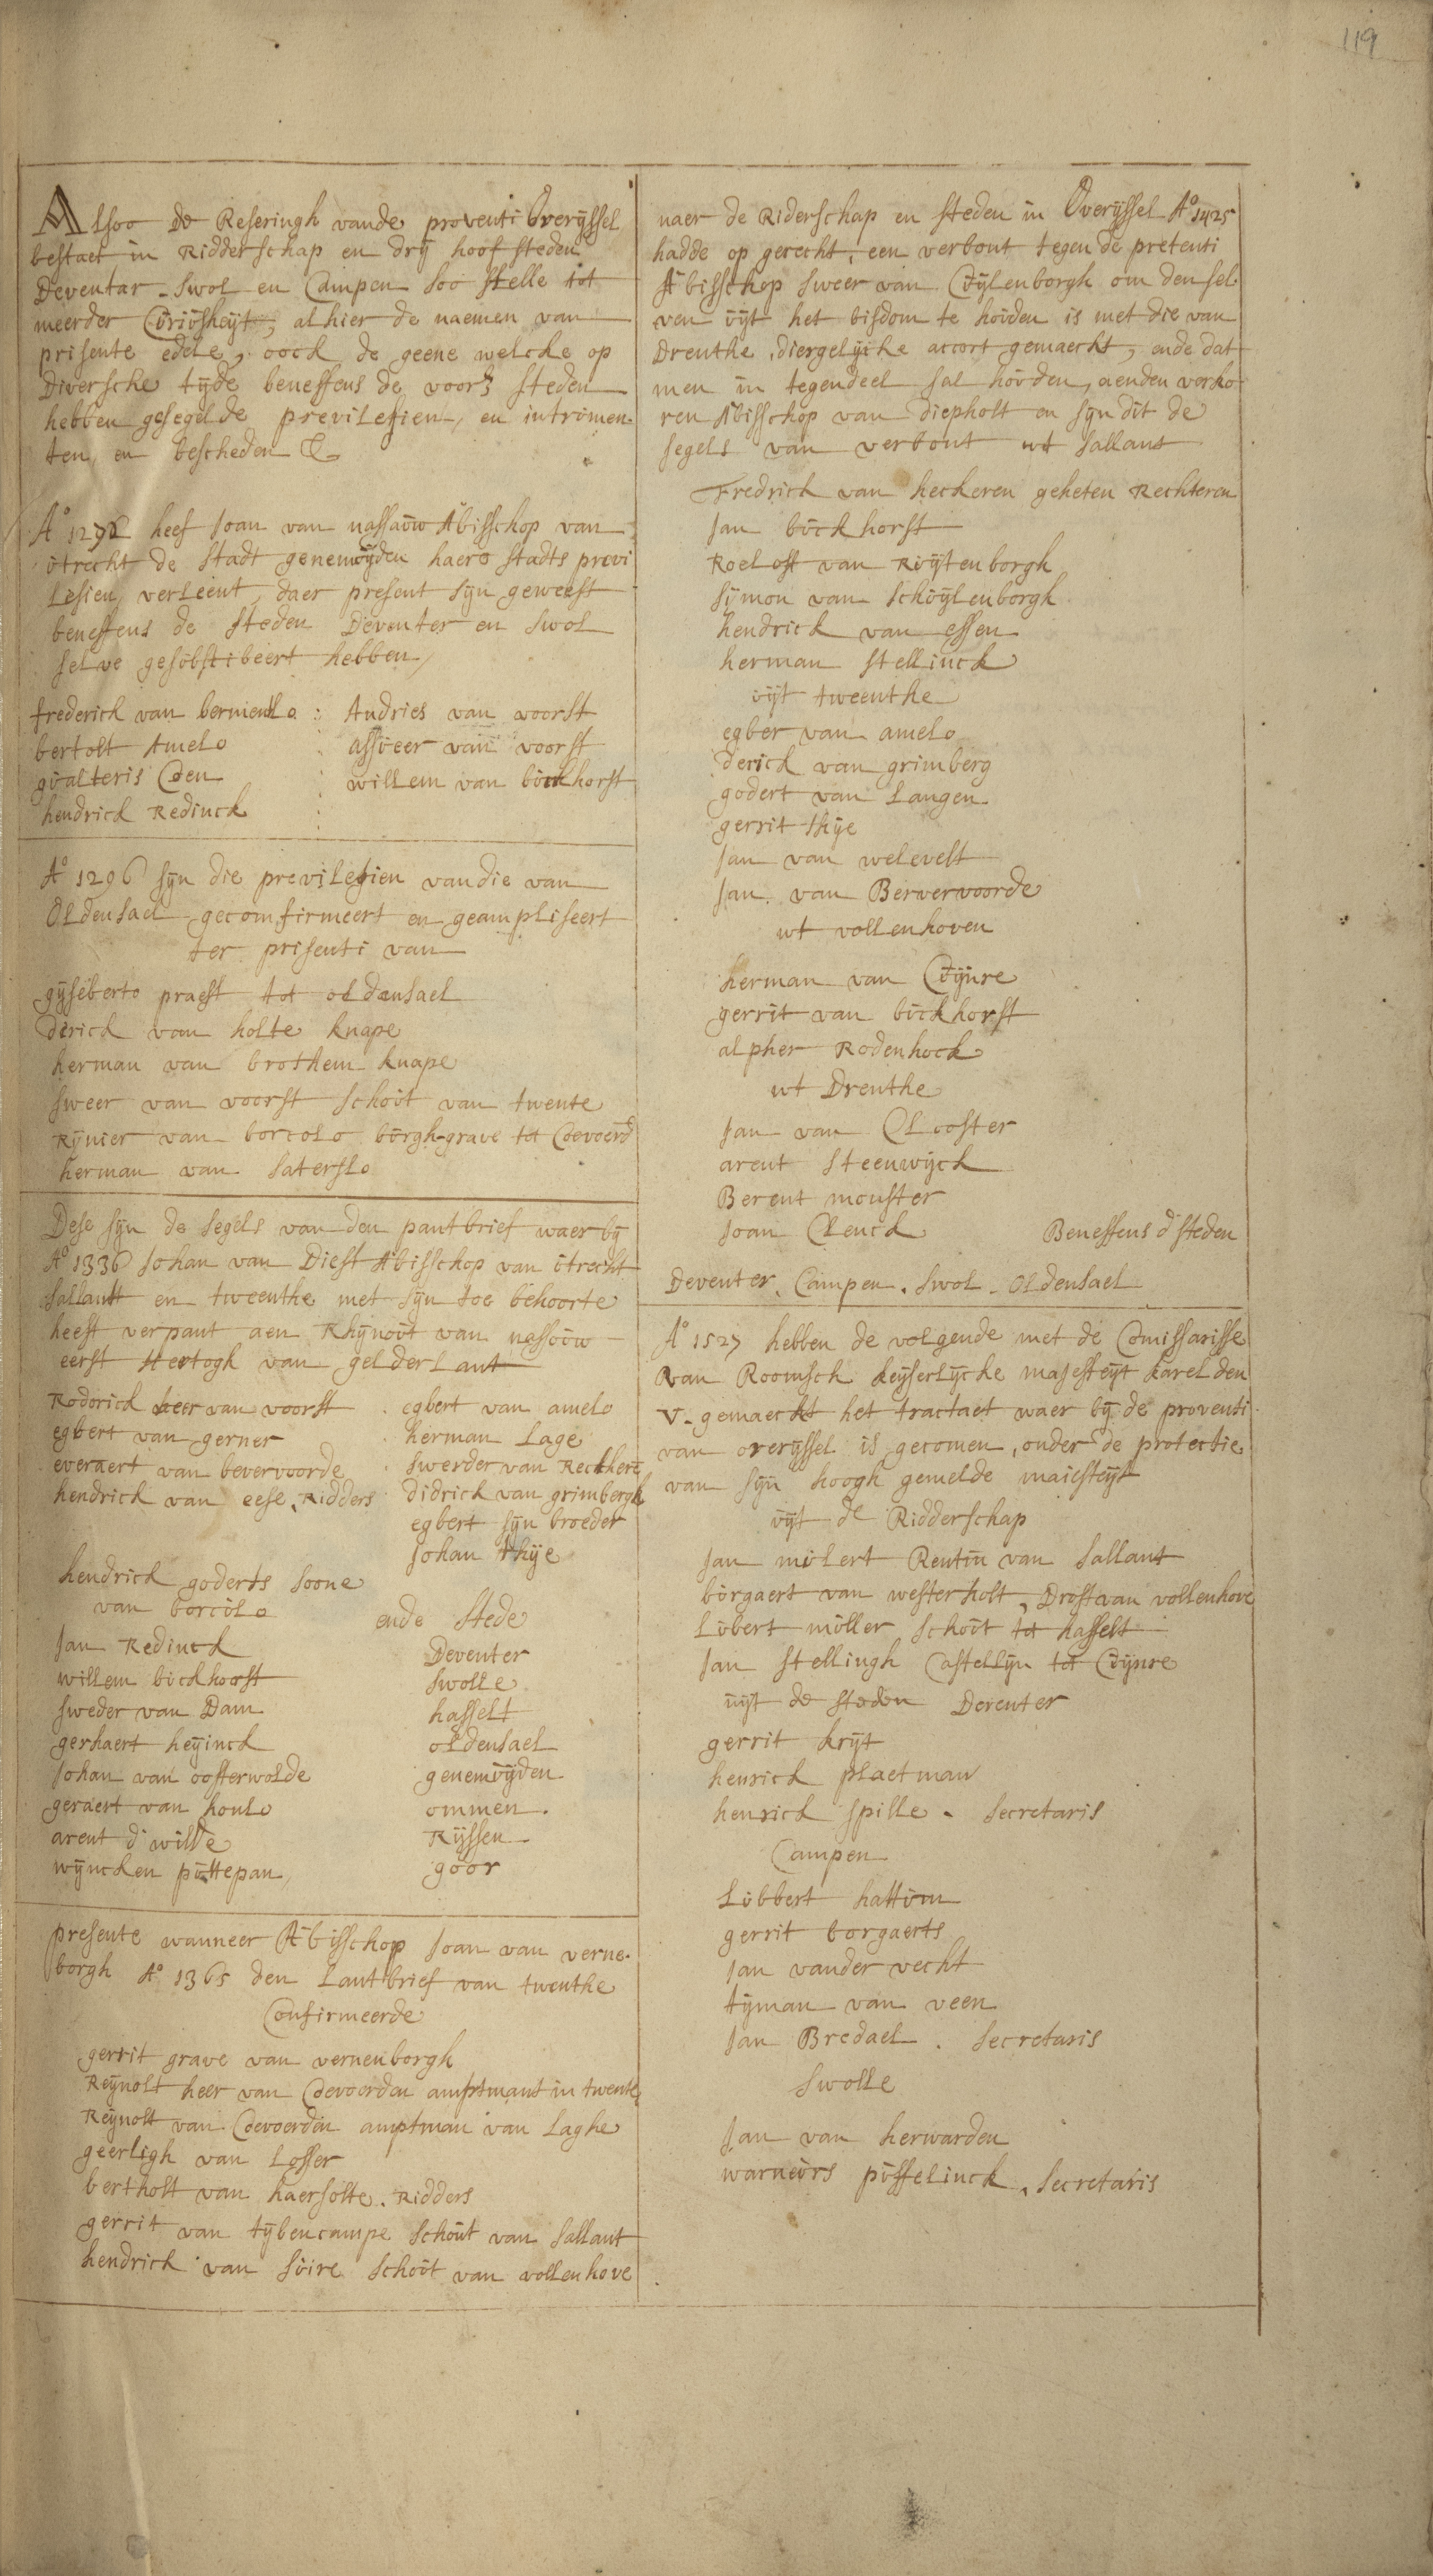 119
Alsoo De Reseringh vande proventi Overijssel
bestaet in Ridderschap en drij hoof steden
Deventar - Swol en Campen soo stelle tot
meerder Cùriùsheijt, alhier de naemen van
prisente edele, oock de geene welcke op
Diversche tijde beneffens de voors steden
hebben gesegelde previlesien, en intrùmen-
ten, en bescheden &
Aº 1276 heef Joan van nassaùw Abisschop van
ùtrecht de stadt genemùijden haere stadts previ
lesien, verleent, daer present sijn geweest
beneffens de steden Deventer en Swol
selve gesùbscribeert hebben,
frederick van bermentlo : Andries van voorst
bertolt Amelo : assùeer van voorst
gùalteris Coen : willem van bùckhorst
hendrick Redinck :
Aº 1296 sijn die previlegien vandie van
Oldensael gecomfirmeert en geampliseert
ter prisenti van
gijseberto praest tot oldensael
derick van holte knape
herman van brothem knape
sweer van voorst schoùt van twente
Rijnier van borcolo bùrgh-grave tot Coevoerd
herman van saterslo
Dese sijn de segels van den pantbrief waer bij
Aº 1336 Johan van Diest Abisschop van ùtrecht
Sallantt en tweenthe met sijn toe behoorte
heeft verpant aen Rhijnoùt van nassoùw
eerst Hertogh van gelderlant
Roderick heer van voorst . egbert van amelo
egbert van gerner . herman Lage
everaert van bevervoorde . swerder van Reckherē
hendrick van eese, Ridders didrick van grimbergh
egbert sijn broeder
Johan thije
hendrick goderts soone
van borcùlo ende stede
Jan Redinck Deventer
willem bùckhorst swolle
sweder van Dam hasselt
gerhaert heijinck oldensael
Johan van oosterwolde genemùijden
geraert van honlo ommen.
arent d' wilde Rijssen
wijncken pùttepan, goor
presente wanneer Abisschop Joan van verne-
borgh Aº 1365 den Lantbrief van twenthe
Confirmeerde
gerrit grave van vernenborgh
Reijnolt heer van Coevoorden amptmant in twente
Reijnolt van Coevoerden amptman van Laghe
geerligh van Losser
bertholt van haersolte. Ridders
gerrit van tijbencampe schoùt van sallant
hendrick van sùire schoùt van vollenhove
naer de Riderschap en steden in Overijssel Aº 1425
hadde op gerecht, een verbont tegen de pretenti
Abisschop sweer van Cùijlenborgh om densel
ven ùijt het bisdom te hoùden is met die van
Drenthe, diergelijcke accort gemaeckt, ende dat
men in tegendeel sal hoùden, aenden verko-
ren Abisschop van diepholt en sijn dit de
segels van verbont ut sallant
Fredrick van heckeren geheten Rechteren
Jan bùckhorst
Roeloff van Rùijtenborgh
sijmon van schùijlenborgh
hendrick van essen
herman stellinck
ùijt tweenthe
egber van amelo
derick van grimberg
godert van Langen
gerrit thije
Jan van welevelt
Jan van Bervervoorde
ut vollenhoven
herman van Cùijnre
gerrit van bùckhorst
alpher Rodenhock
ut Drenthe
Jan van Clooster
arent steenwijck
Berent monster
Joan Clenck Beneffens d' steden
Deventer, Campen, Swol - Oldensael
Aº 1527 hebben de volgende met de Comissarisse
van Roomsch keijserlijcke majesteijt karel den
V- gemaeckt het tractaet waer bij de proventi
van overijssel is gecomen, onder de protectie
van sijn hoogh gemelde maiesteijt
ùijt de Ridderschap
Jan mùlert Rentm van sallant
bùrgaert van westerholt, Drost van vollenhove
Lùbert mùller schoùt tot hasselt
Jan stellingh Castellijn tot Cùijnre
ùijt de steden Deventer
gerrit krijt
henrick plaetman
henrick spille - secretaris
Campen
Lùbbert hattùm
gerrit borgaerts
Jan vander vecht
tijman van veen
Jan Bredael . secretaris
Swolle
Jan van herwarden
warneùrs pùffelinck, secretaris